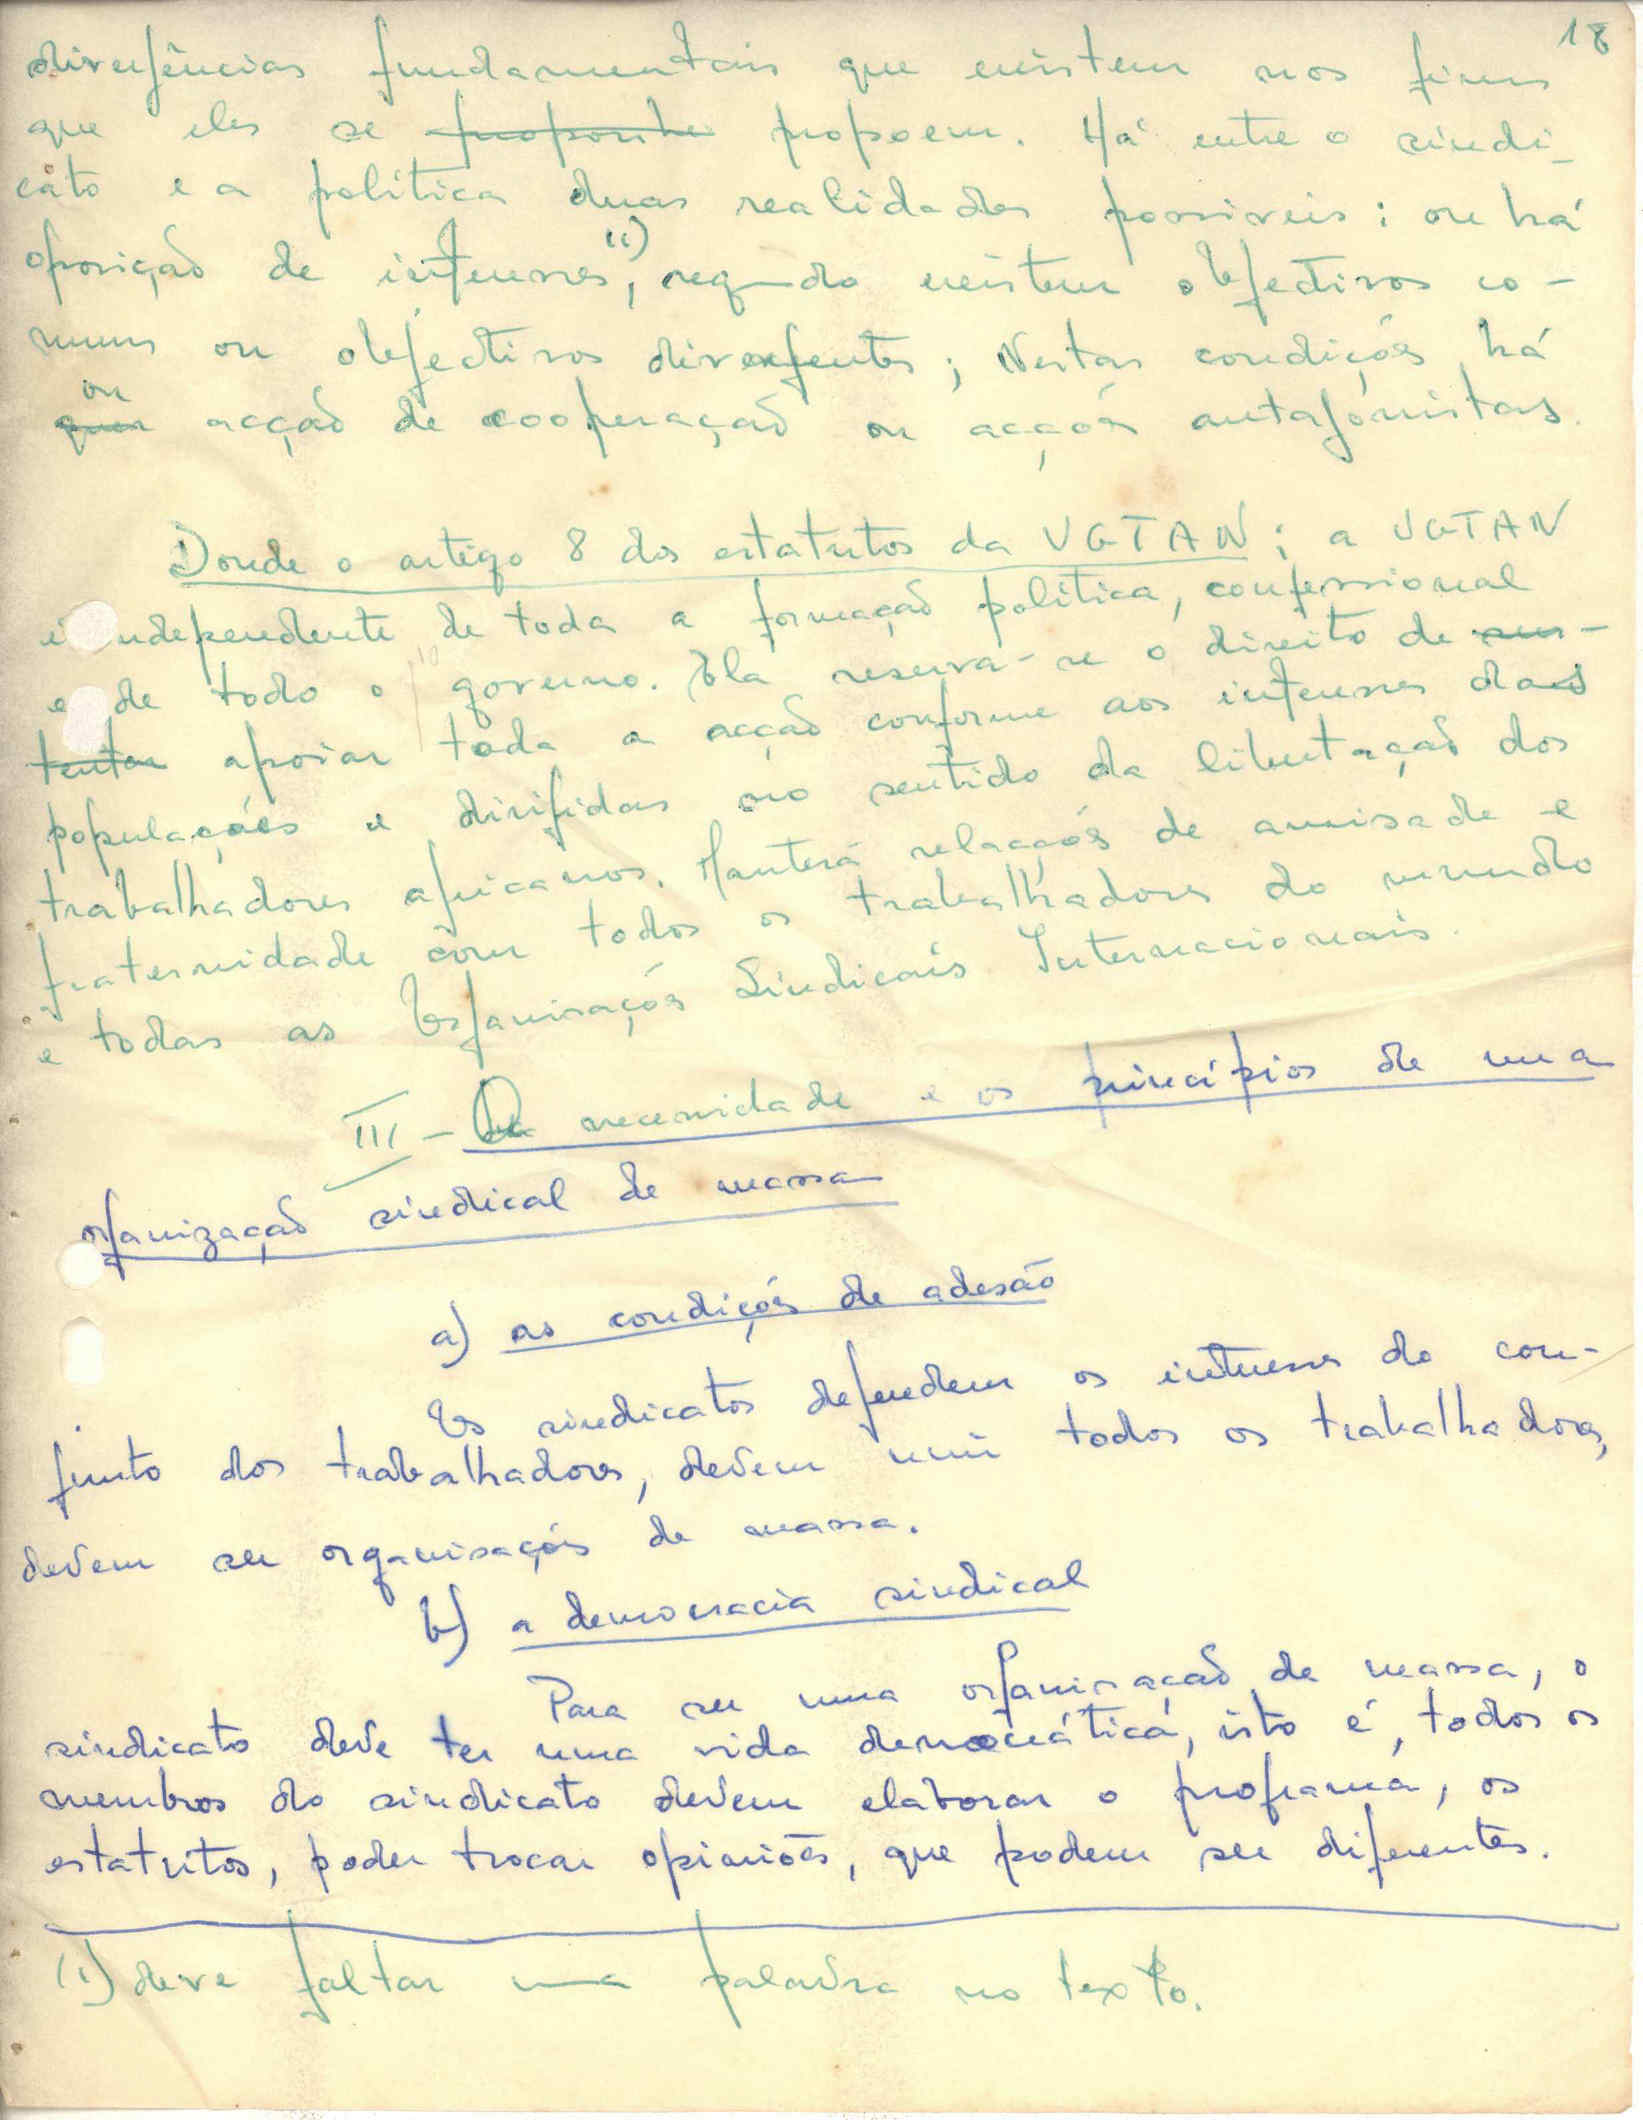 18
divergências fundamentais que existem nos fins
que eles se proponhe propoem. Há entre o sindi-
cato e a política duas realidades possiveis: ou há
oposição de interesses, (1) segundo existem objectivos co-
muns ou objectivos divergentes; Nestas condições há
quer ou acção de cooperação ou acções antagónistas.
Donde o artigo 8 dos estatutos da UGTAN: a UGTAN
é independente de toda a formação política, confessional
e de todo o governo. Ela reserva-se o direito de sus-
tentar apoiar toda a acção conforme aos interesses das
populações e dirifidas no sentido da libertação dos
trabalhadores africanos. Manterá relações de amisade e
fraternidade com todos os trabalhadores do mundo
e todas as Organisações Sindicais Internacionais.
III - A necessidade e os princípios de uma
organização sindical de massa
a) as condições de adesão
Os sindicatos defendem os interesses do con-
junto dos trabalhadores, devem unir todos os trabalhadores,
devem ser organisações de massa.
b) a democracia sindical
Para ser uma organisação de massa, o
sindicato deve ter uma vida democrática, isto é, todos os
membros do sindicato devem elaborar o programa, os
estatutos, poder trocar opiniões, que podem ser diferentes.
(1) deve faltar uma palavra no texto.